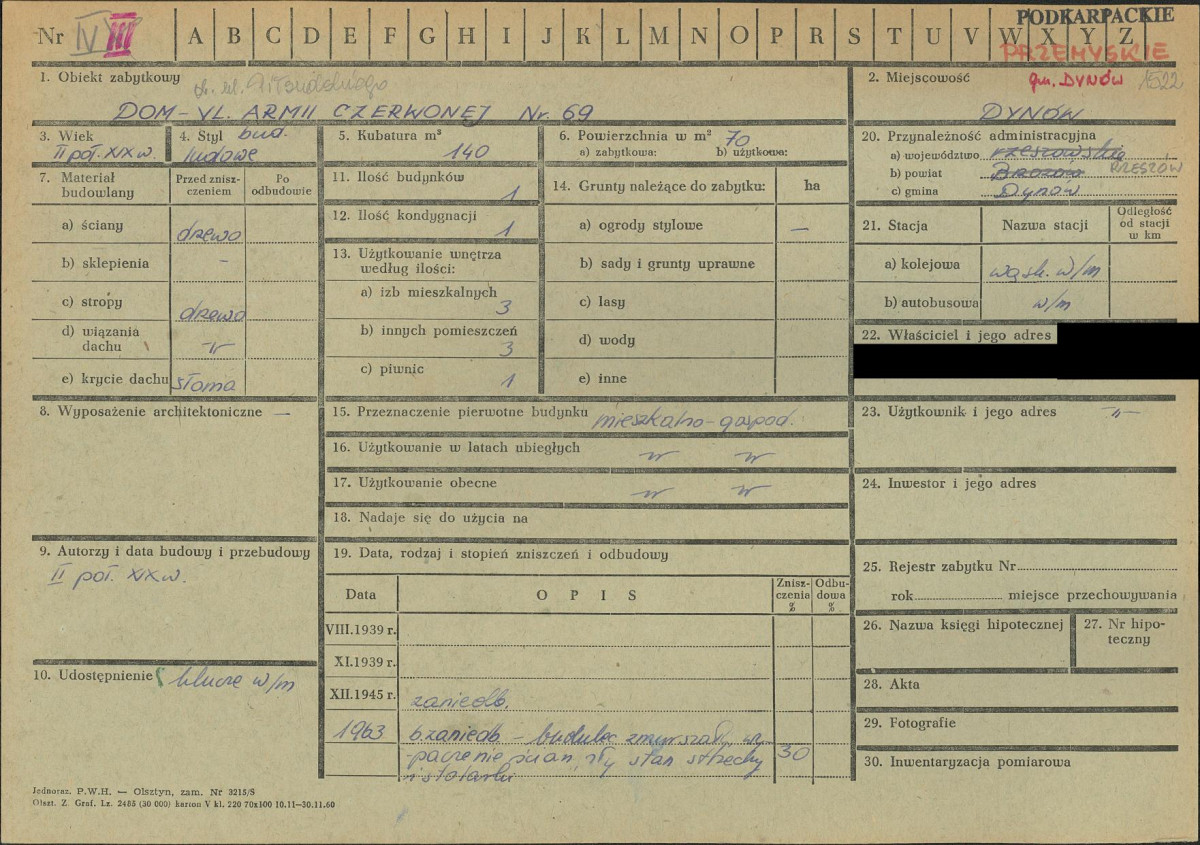 PODKARPACKIE
Nr IV III A B C D E F G H I J K L M N O P R S T U V W X Y Z
PRZEMYSKIE
1. Obiekt zabytkowy ob. ul. Piłsudskiego
DOM - UL. ARMII CZERWONEJ Nr. 69
2. Miejscowość gm. DYNÓW 1522
DYNÓW
3. Wiek
II poł. XIX w.
4. Styl bud.
ludowe
5. Kubatura m³
140
6. Powierzchnia w m² 70
a) zabytkowa: b) użytkowa:
7. Materiał budowlany
Przed znisz-
czeniem
Po
odbudowie
a) ściany drzewo
b) sklepienia –
c) stropy drzewo
d) wiązania
dachu -"-
e) krycie dachu słoma
8. Wyposażenie architektoniczne —
9. Autorzy i data budowy i przebudowy
II poł. XIX w.
10. Udostępnienie klucze w/m
11. Ilość budynków
1
12. Ilość kondygnacji
1
13. Użytkowanie wnętrza
według ilości:
a) izb mieszkalnych
3
b) innych pomieszczeń
3
c) piwnic
1
14. Grunty należące do zabytku: ha
a) ogrody stylowe –
b) sady i grunty uprawne
c) lasy
d) wody
e) inne
15. Przeznaczenie pierwotne budynku mieszkalno-gospod.
16. Użytkowanie w latach ubiegłych -"- -"-
17. Użytkowanie obecne -"- -"-
18. Nadaje się do użycia na
19. Data, rodzaj i stopień zniszczeń i odbudowy
Data
OPIS
Znisz-
czenia
%
Odbu-
dowa
%
VIII.1939 r.
XI.1939 r.
XII.1945 r. zaniedb.
1963 b.zaniedb - budulec zmurszały, wy-
paczenie ścian, zły stan strzechy 30
i stolarki
20. Przynależność administracyjna
a) województwo rzeszowskie
b) powiat Brozów RZESZÓW
c) gmina Dynów
21. Stacja
Nazwa stacji
Odległość
od stacji
w km
a) kolejowa wąsk. w/m
b) autobusowa w/m
22. Właściciel i jego adres
23. Użytkownik i jego adres -"-
24. Inwestor i jego adres
25. Rejestr zabytku Nr
rok miejsce przechowywania
26. Nazwa księgi hipotecznej
27. Nr hipo-
teczny
28. Akta
29. Fotografie
30. Inwentaryzacja pomiarowa
Jednoraz. P.W.H. — Olsztyn, zam. Nr 3215/S
Olszt. Z. Graf. Lz. 2485 (30 000) karton V kl. 220 70x100 10.11—30.11.60